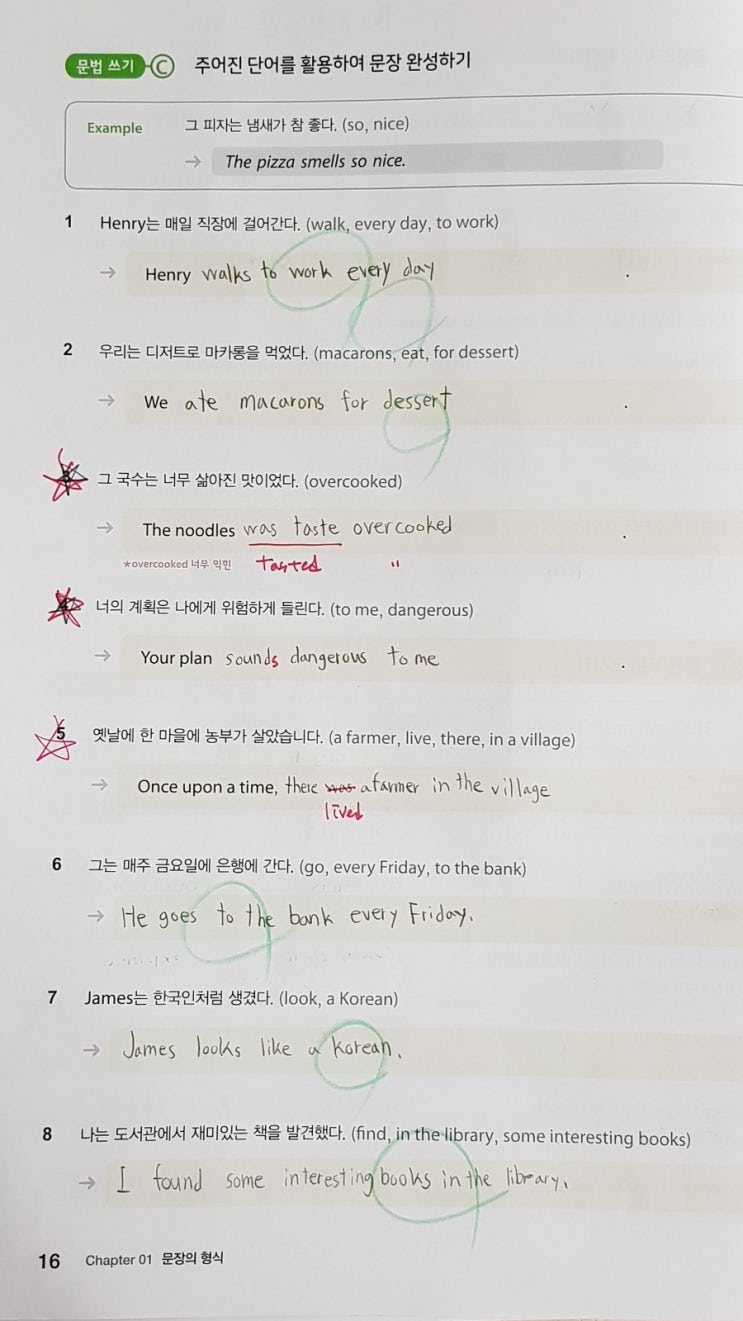 문법 쓰기 C 주어진 단어를 활용하여 문장 완성하기
Example 그 피자는 냄새가 참 좋다. (so, nice)
→ The pizza smells so nice.
1 Henry는 매일 직장에 걸어간다. (walk, every day, to work)
→ Henry walks to work every day .
2 우리는 디저트로 마카롱을 먹었다. (macarons, eat, for dessert)
→ We ate macarons for dessert .
3 그 국수는 너무 삶아진 맛이었다. (overcooked)
→ The noodles was taste overcooked .
★overcooked 너무 익힌 tasted "
4 너의 계획은 나에게 위험하게 들린다. (to me, dangerous)
→ Your plan sounds dangerous to me .
5 옛날에 한 마을에 농부가 살았습니다. (a farmer, live, there, in a village)
→ Once upon a time, there was a farmer in the village
lived
6 그는 매주 금요일에 은행에 간다. (go, every Friday, to the bank)
→ He goes to the bank every Friday.
7 James는 한국인처럼 생겼다. (look, a Korean)
→ James looks like a Korean.
8 나는 도서관에서 재미있는 책을 발견했다. (find, in the library, some interesting books)
→ I found some interesting books in the library.
16 Chapter 01 문장의 형식